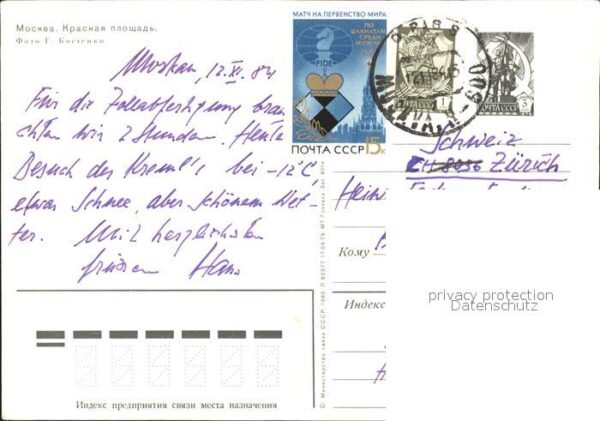 Москва. Красная площадь.
Фото Г. Костенко
МАТЧ НА ПЕРВЕНСТВО МИРА
ПО
ШАХМАТАМ
СРЕДИ
МУЖЧИН
FIDE
ПОЧТА СССР 15к
ПОЧТА СССР
ПОЧТА СССР
Moskau, 12. XI. 84
Für die Zollabfertigung brau-
chten wir 2 Stunden. Heute
Besuch des Kreml's bei -12°C,
etwas Schnee, aber schönem Wet-
ter. Mit herzlichsten
Grüssen Hans
Schweiz
CH 8036 Zürich
Кому
Индекс
privacy protection
Datenschutz
Индекс предприятия связи места назначения
© Министерство связи СССР. 1980